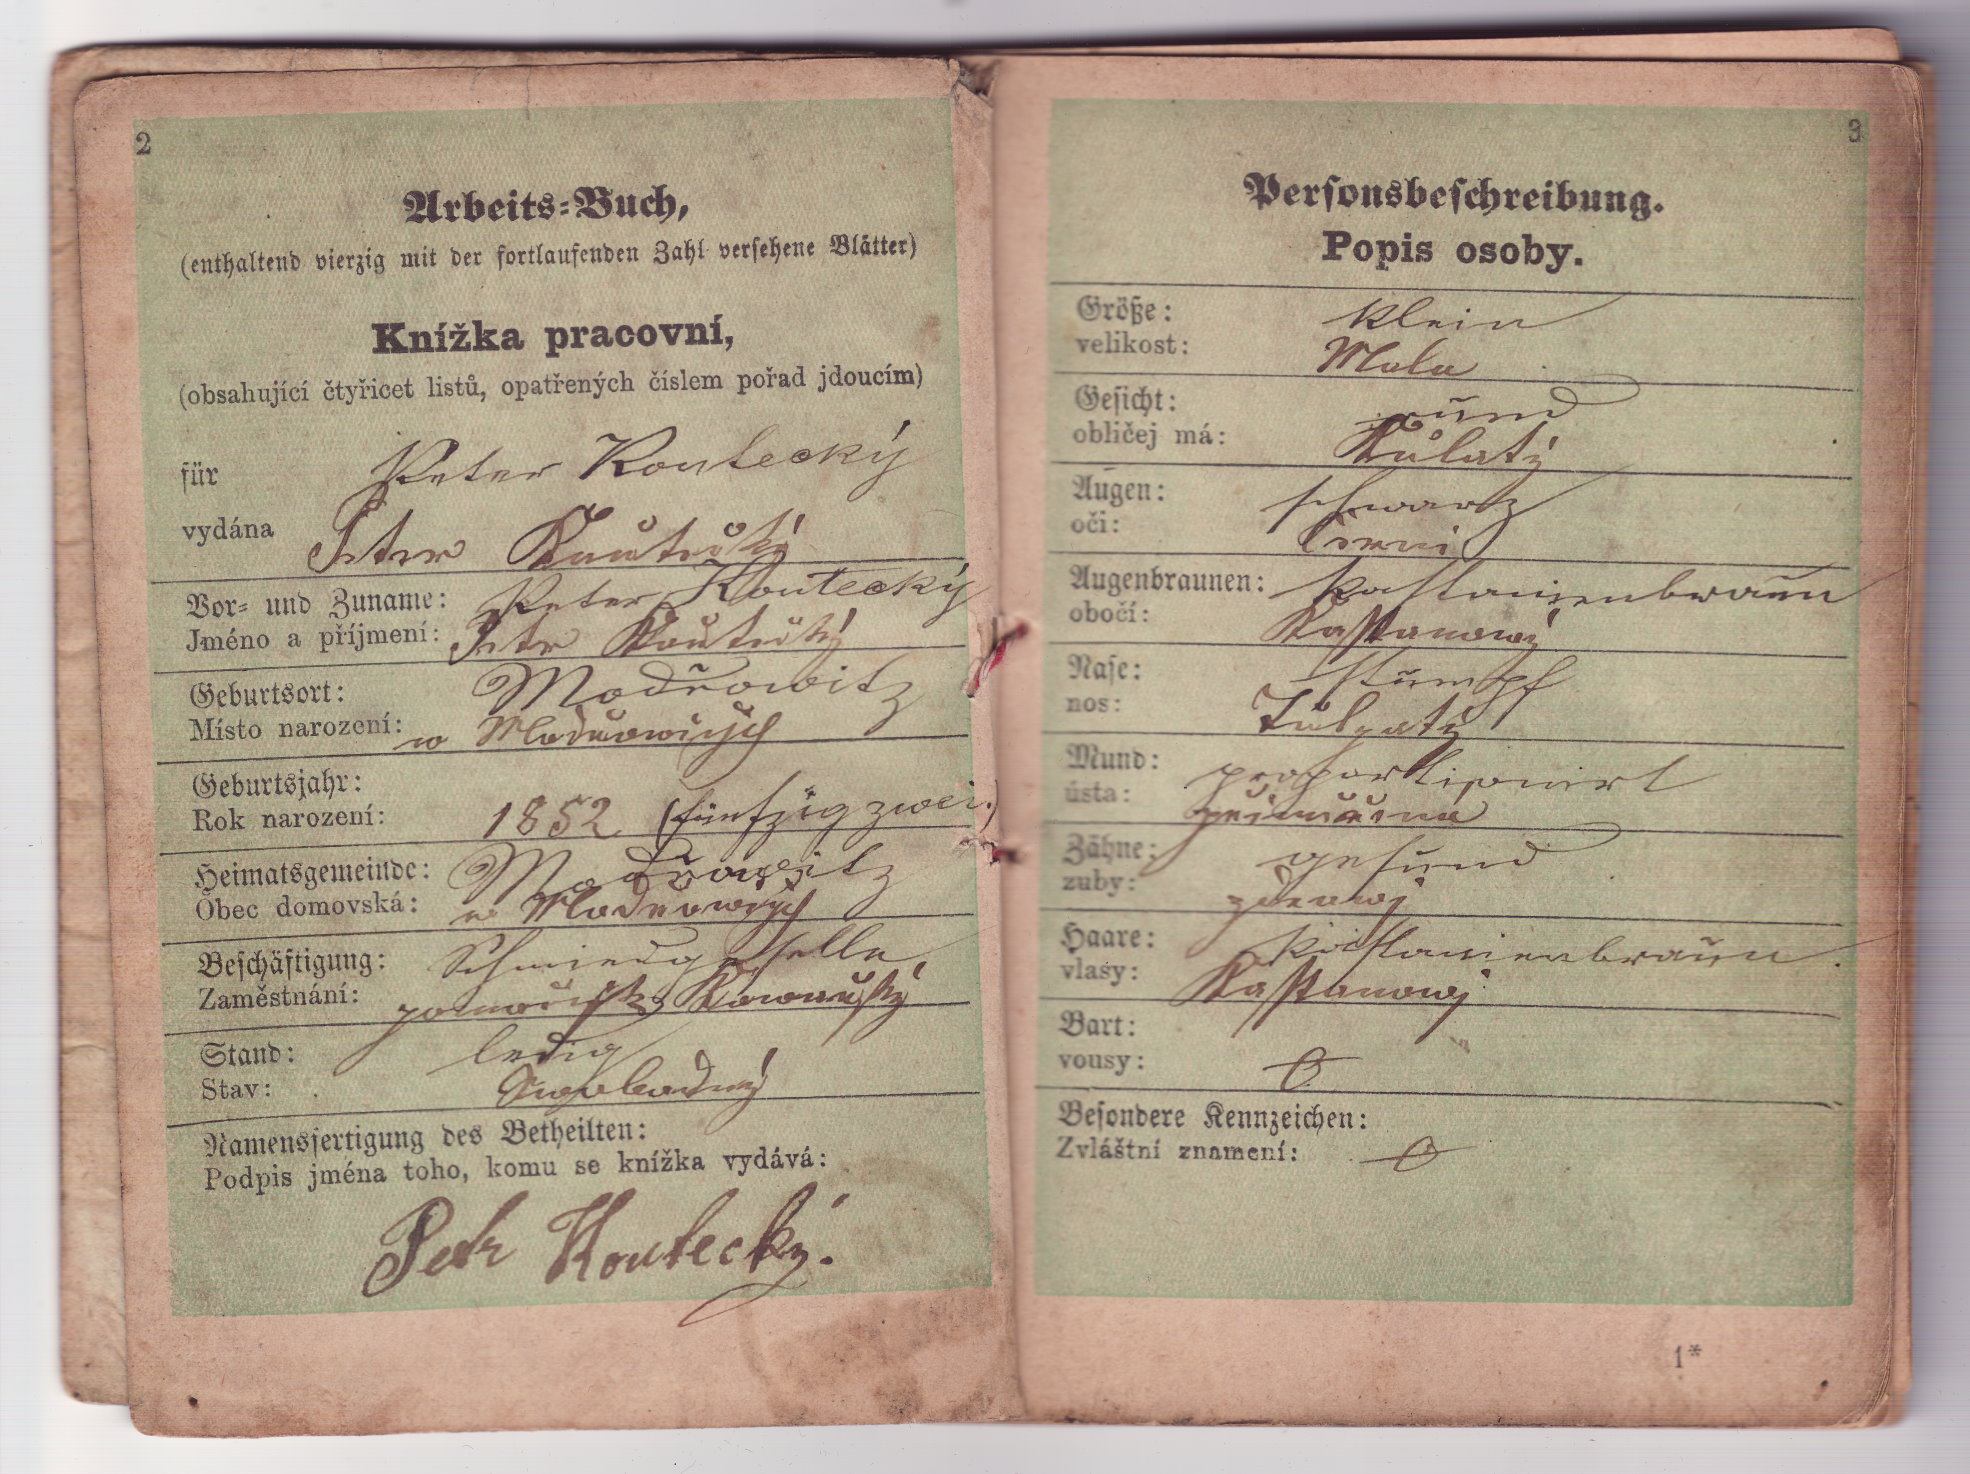 2
Arbeits-Buch,
(enthaltend vierzig mit der fortlaufenden Zahl versehene Blätter)
Knížka pracovní,
(obsahující čtyřicet listů, opatřených číslem pořad jdoucím)
für Peter Koutecký
vydána Petr Koutecký
Vor- und Zuname: Peter Koutecký
Jméno a příjmení: Petr Koutecký
Geburtsort: Modřowitz
Místo narození: w Modřowicých
Geburtsjahr:
Rok narození: 1852 (fünfzig zwei.)
Heimatsgemeinde: Modřowitz
Obec domovská: w Modřowicých
Beschäftigung: Schmiedgeselle
Zaměstnání: Kowařský
Stand: ledig
Stav: Swobodný
Namensfertigung des Betheilten:
Podpis jména toho, komu se knížka vydává:
Petr Koutecký.
3
Personsbeschreibung.
Popis osoby.
Größe: klein
velikost: Mala
Gesicht: rund
obličej má: Kulatý
Augen: schwarz
oči: Černi
Augenbraunen: kastanienbraun
obočí: Kastanowý
Nase: stumpf
nos:
Mund: proportionirt
ústa:
Zähne: gesund
zuby:
Haare: kastanienbraun.
vlasy: Kastanowý
Bart:
vousy: 0
Besondere Kennzeichen:
Zvláštní znamení: 0
1*